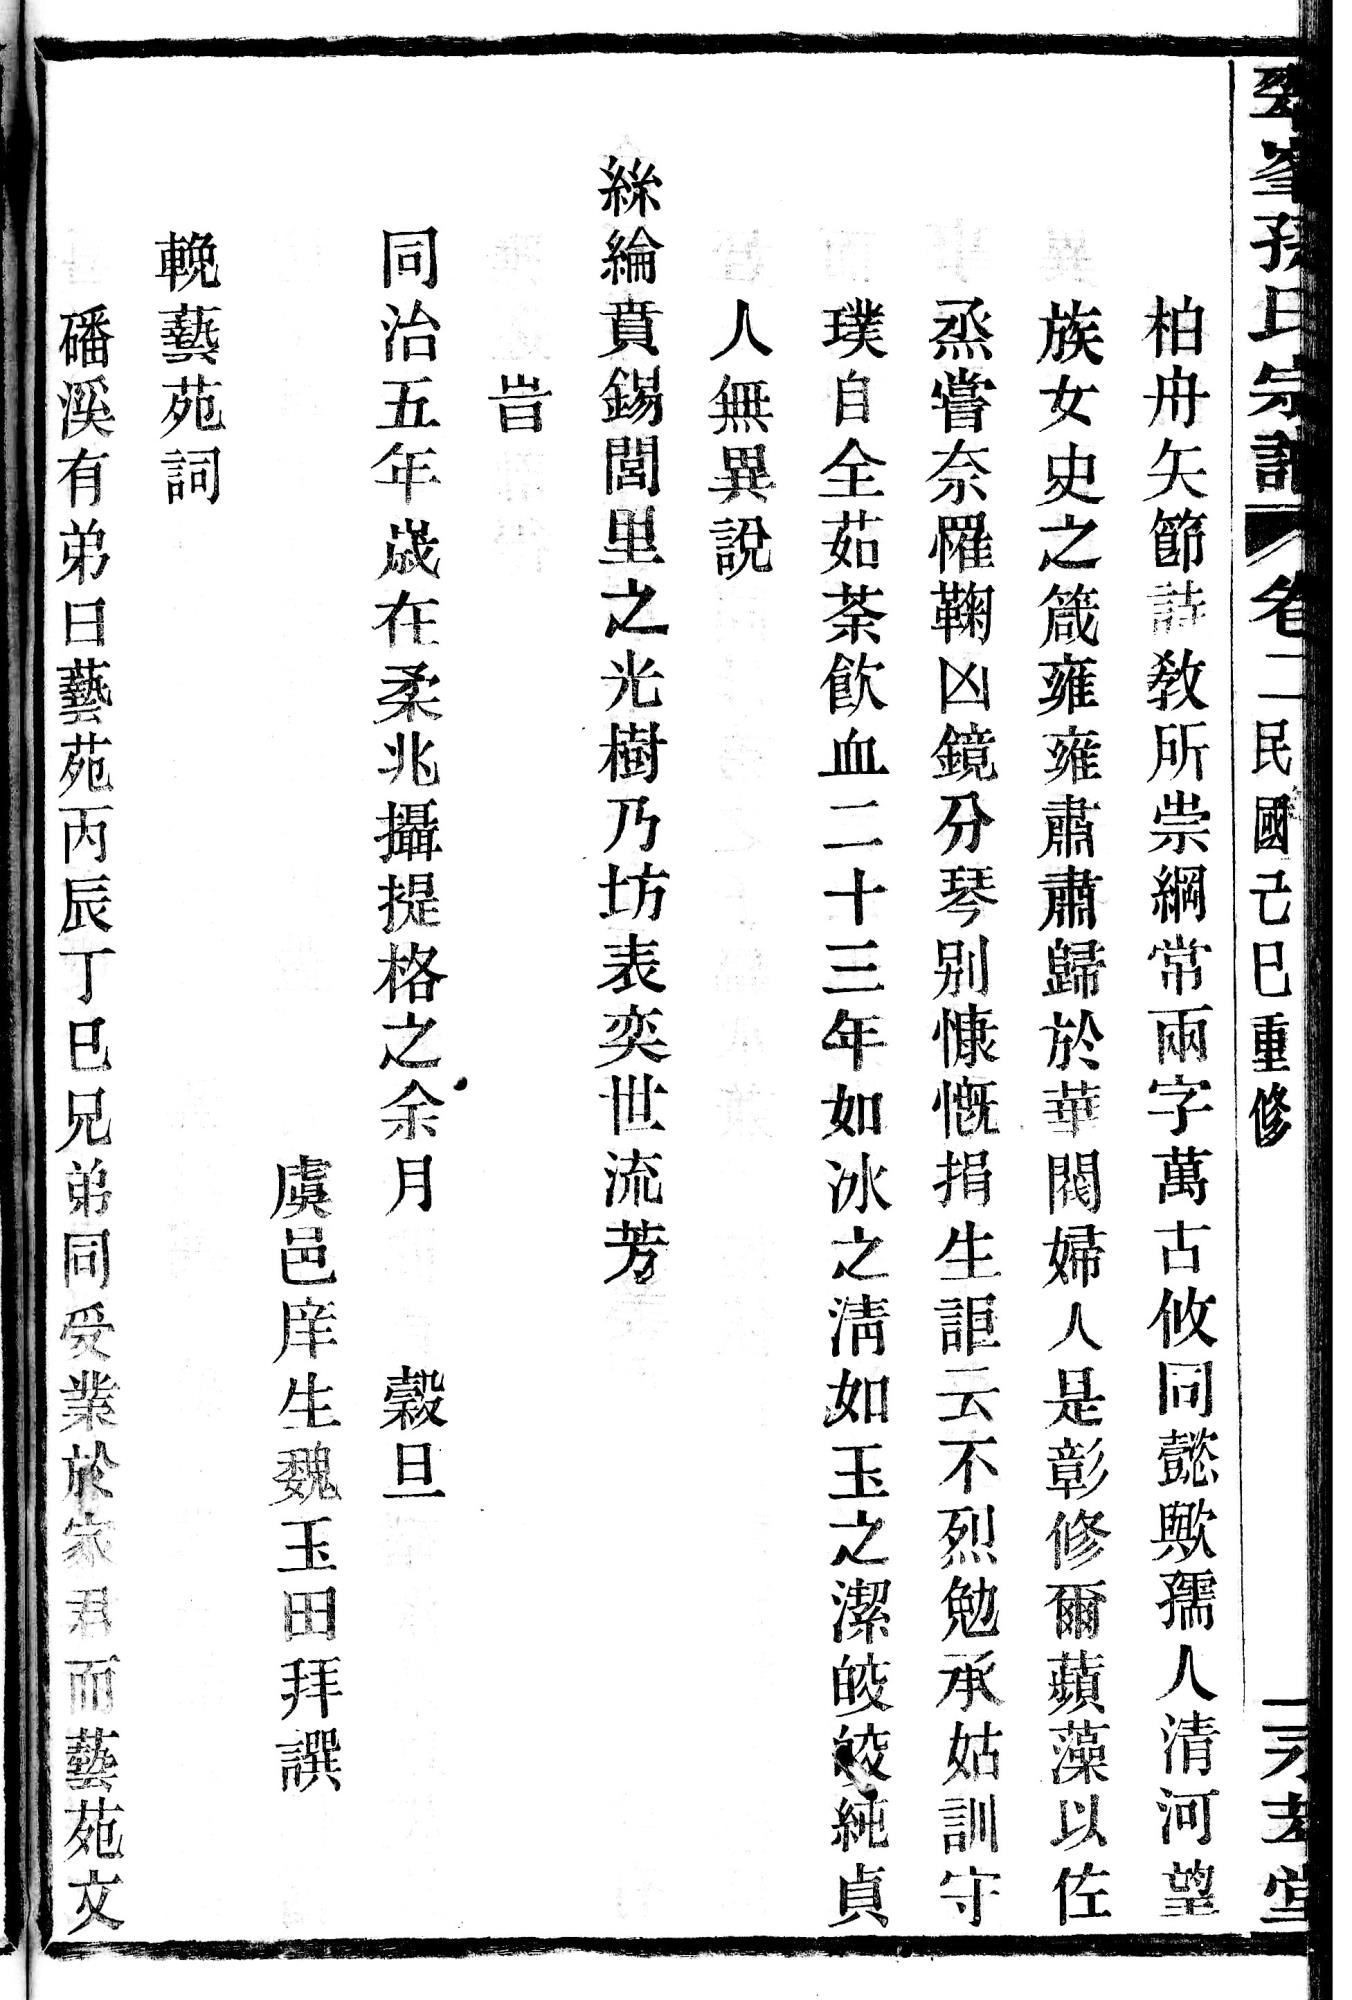 峯孫氏宗譜 卷二 民國己巳重修 堂
柏舟矢節詩教所崇綱常兩字萬古攸同懿歟孺人清河望
族女史之箴雍雍肅肅歸於華閥婦人是彰修爾蘋藻以佐
烝嘗奈罹鞠凶鏡分琴别慷慨捐生詎云不烈勉承姑訓守
璞自全茹荼飮血二十三年如冰之淸如玉之潔皎皎純貞
人無異說
絲綸賁錫閭里之光樹乃坊表奕世流芳
旹
同治五年歲在柔兆攝提格之余月 穀旦
虞邑庠生魏玉田拜譔
輓藝苑詞
磻溪有弟曰藝苑丙辰丁巳兄弟同受業於家君而藝苑文